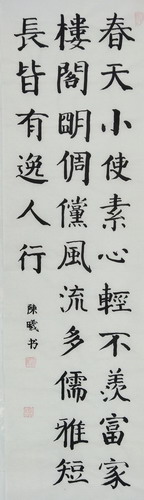 春天小使素心輕不羨富家
樓閣明倜儻風流多儒雅短
長皆有逸人行
陳曦书